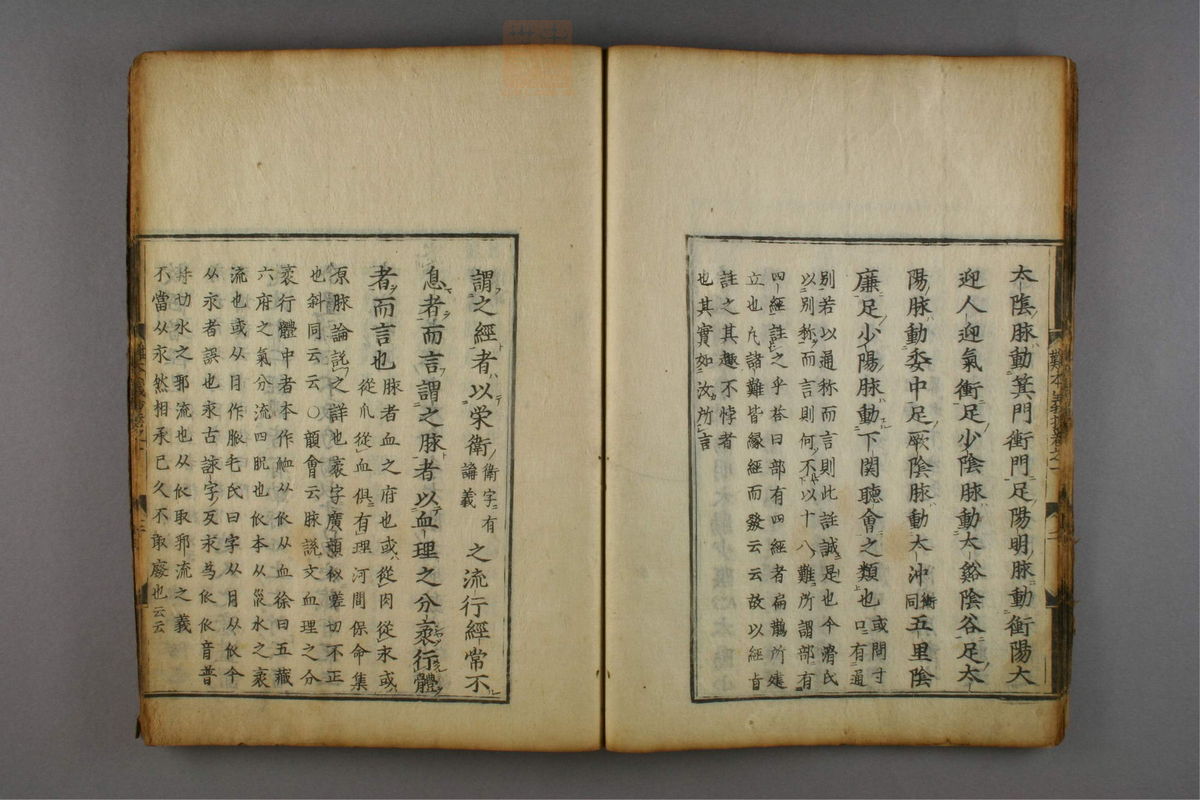 太陰脉動箕門衝門足陽明脉動衝陽大
迎人迎氣衝足少陰脉動太谿陰谷足太
陽脉動委中足厥陰脉動太冲衝同五里陰
廉足少陽脉動下関聴會之類也或問寸口有通
別若以通称而言則此註誠是也今滑氏
以別称而言則何不以十八難所謂部有
四經註之乎荅曰部有四經者扁鵲所建
立也凡諸難皆縁經而發云云故以經旨
註之其趣不悖者
也其實如汝所言
謂之經者以栄衛衛字有論義之流行經常不
息者而言謂之脉者以血理之分衺行體
者而言也脉者血之府也或從肉從永或
從爪從血俱有理河間保命集
原脉論説之詳也衺字廣韻似嗟切不正
也斜同云云○韻會云脉説文血理之分
衺行體中者本作衇从𠂢从血徐曰五藏
六府之氣分流四肢也𠂢本从巛水之衺
流也或从月作脈毛氏曰字从月从𠂢今
从永者誤也永古詠字反永為𠂢𠂢音普
拜切水之邪流也从𠂢取邪流之義
不當从永然相承已久不敢廢也云云